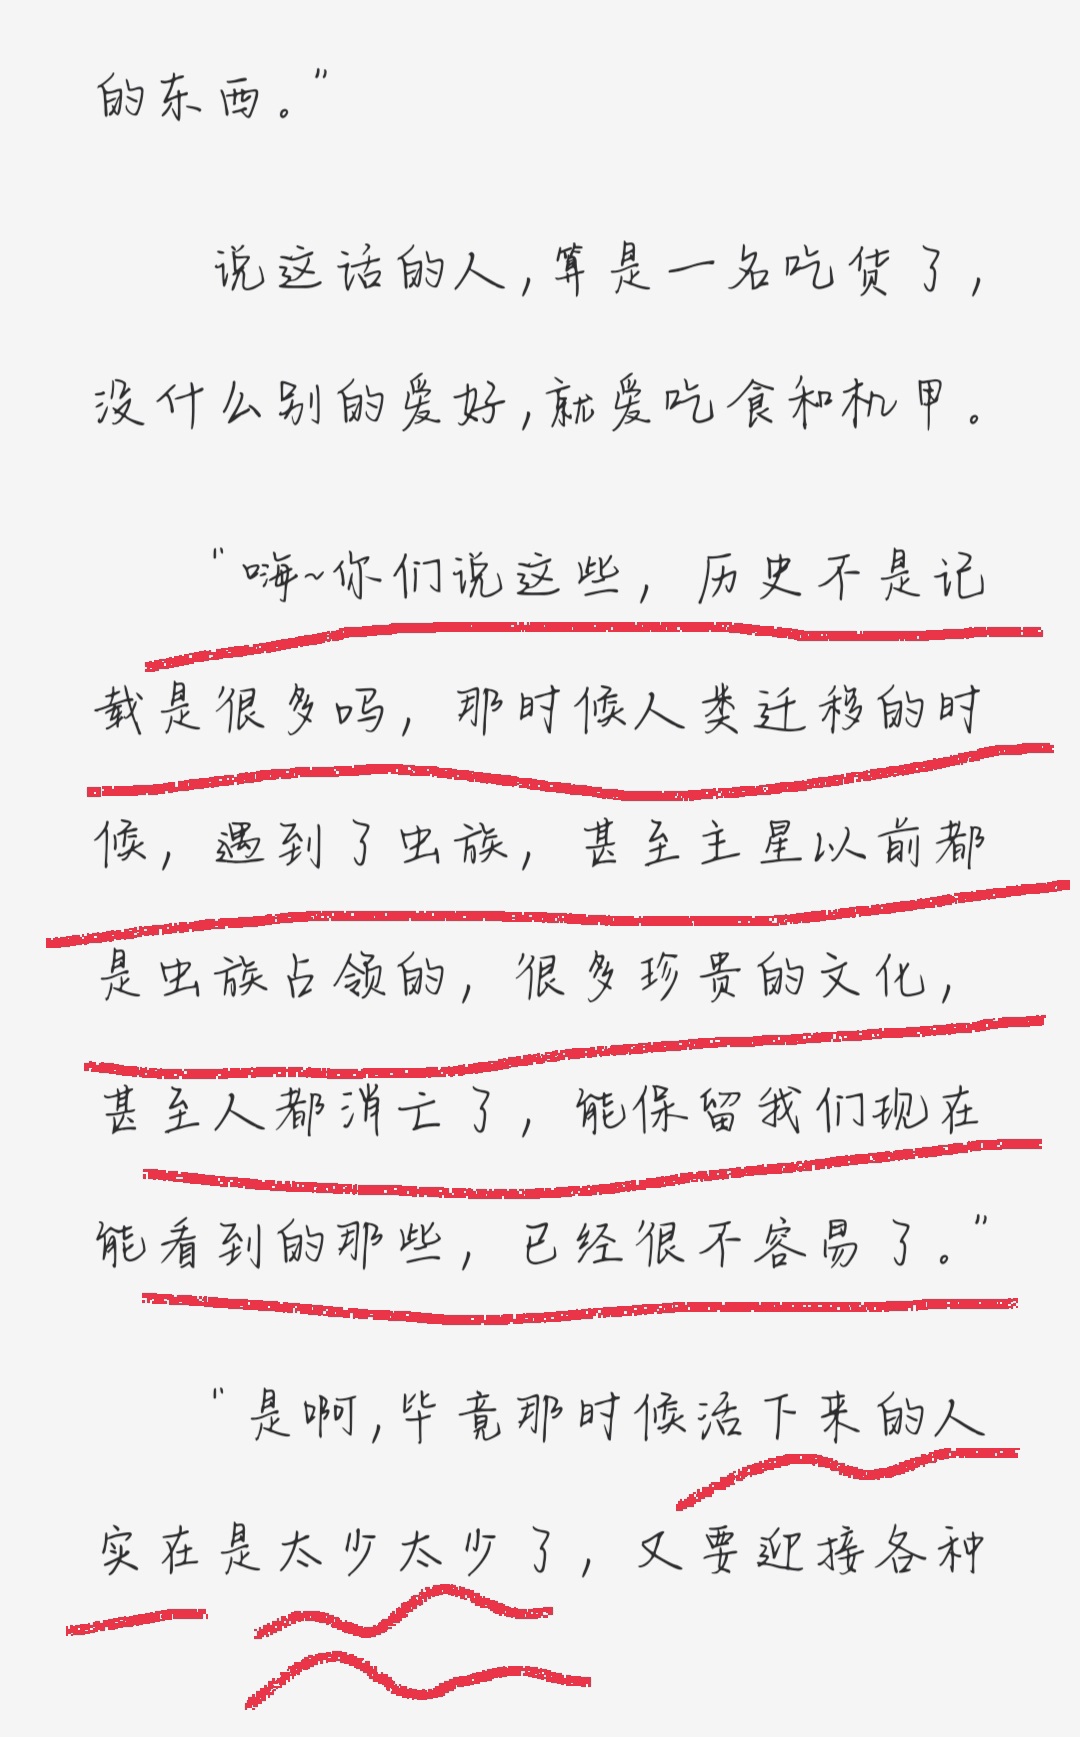 的东西。"
说这话的人,算是一名吃货了,
没什么别的爱好,就爱吃食和机甲。
"嗨~你们说这些，历史不是记
载是很多吗，那时候人类迁移的时
候，遇到了虫族，甚至主星以前都
是虫族占领的，很多珍贵的文化，
甚至人都消亡了，能保留我们现在
能看到的那些，已经很不容易了。"
"是啊,毕竟那时候活下来的人
实在是太少太少了，又要迎接各种